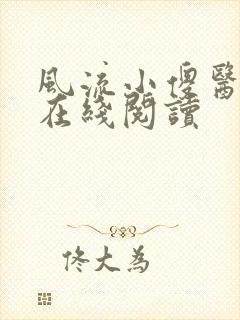 風流小傻醫
在綫閱讀
佟大為